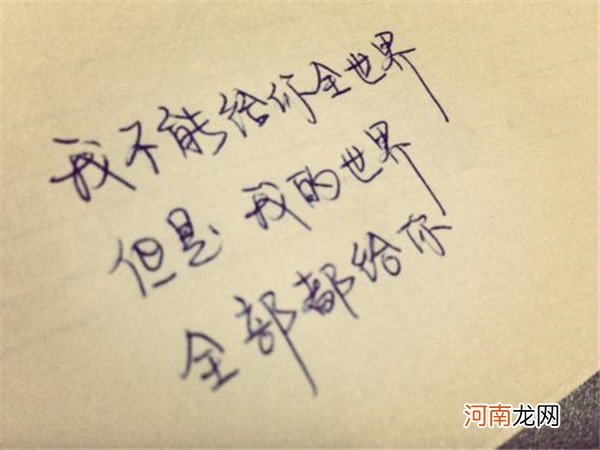 我不能给你全世界
但是我的世界
全部都给你
河南龙网